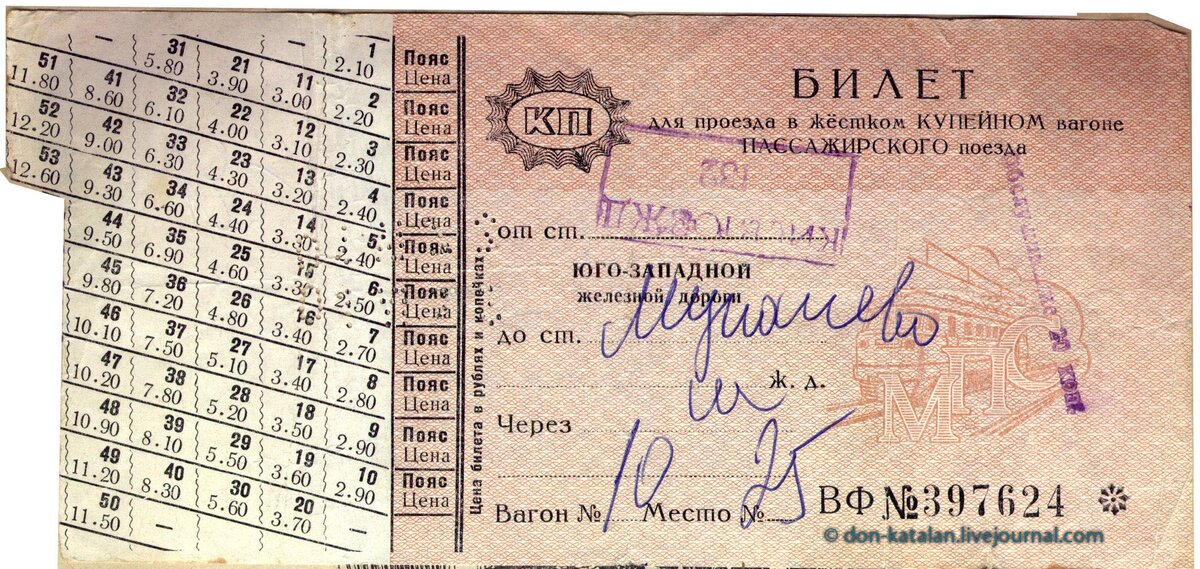 — — 1
2.10
31 21 11 2
5.80 3.90 3.00 2.20
51 41 32 22 12 3
11.80 8.60 6.10 4.00 3.10 2.30
52 42 33 23 13 4
12.20 9.00 6.30 4.30 3.20 2.40
53 43 34 24 14 5
12.60 9.30 6.60 4.40 3.30 2.40
44 35 25 15 6
9.50 6.90 4.60 3.30 2.50
45 36 26 16 7
9.80 7.20 4.80 3.40 2.70
46 37 27 8
10.10 7.50 5.10 3.40 2.80
47 38 28 18 9
10.20 7.80 5.20 3.50 2.90
48 39 29 19 10
10.90 8.10 5.50 3.60 2.90
49 40 30 20
11.20 8.30 5.60 3.70
50 — —
11.50
Пояс
Цена
Пояс
Цена
Пояс
Цена
Пояс
Цена
Пояс
Цена
Пояс
Цена
Пояс
Цена
Пояс
Цена
Пояс
Цена
Пояс
Цена
Цена билета в рублях и копейках
КП
БИЛЕТ
для проезда в жёстком КУПЕЙНОМ вагоне
ПАССАЖИРСКОГО поезда
132
от ст.
ЮГО-ЗАПАДНОЙ
железной дороги
до ст.
ж. д.
МПС
коп
Через
Вагон № 10 Место № 25
ВФ №397624
© don-katalan.livejournal.com